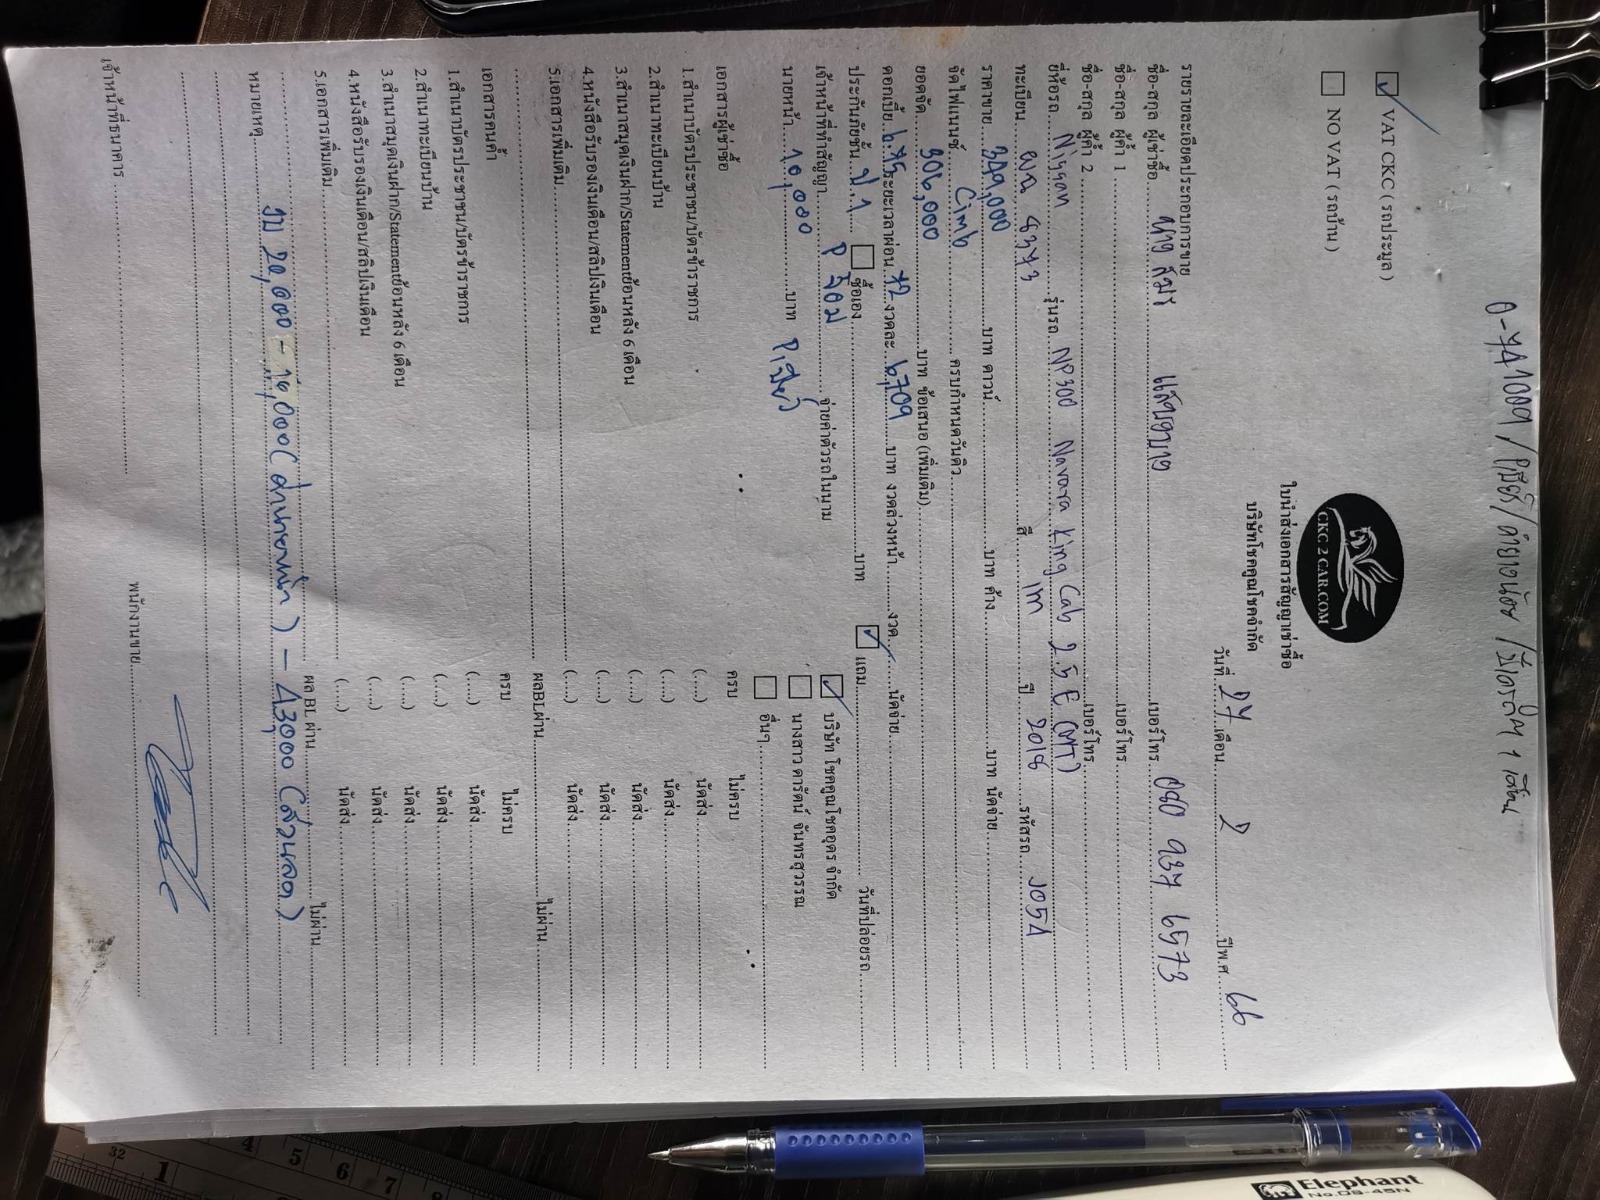 VAT CKC ( รถประมูล )
NO VAT ( รถบ้าน )
CKC 2 CAR.COM
ใบนำส่งเอกสารสัญญาเช่าซื้อ
บริษัทโชคคูณโชคจำกัด
วันที่ 27 เดือน 2 ปีพ.ศ. 66
รายละเอียดประกอบการขาย
ชื่อ-สกุล ผู้เช่าซื้อ นาง เบอร์โทร 080 937 6573
ชื่อ-สกุล ผู้ค้ำ 1 เบอร์โทร
ชื่อ-สกุล ผู้ค้ำ 2 เบอร์โทร
ยี่ห้อรถ Nissan รุ่นรถ NP300 Navara King Cab 2.5 E (MT)
ทะเบียน 8373 สี เทา ปี 2016 รหัสรถ J05A
ราคาขาย 349,000 บาท ดาวน์ บาท ค้าง บาท นัดจ่าย
จัดไฟแนนซ์ Cimb ครบกำหนดวันคิว
ยอดจัด 306,000 บาท ข้อเสนอ (เพิ่มเติม)
ดอกเบี้ย 6.75 ระยะเวลาผ่อน 72 งวดละ 6,709 บาท งวดล่วงหน้า งวด นัดจ่าย
ประกันภัยชั้น ป.1 ซื้อเอง บาท แถม วันที่ปล่อยรถ
เจ้าหน้าที่ทำสัญญา P จ๋อม จ่ายค่าตัวรถในนาม บริษัท โชคคูณโชคอุดร จำกัด
นายหน้า 10,000 บาท นางสาว ดารัตน์ จันทรสุวรรณ
อื่นๆ
เอกสารผู้เช่าซื้อ ครบ ไม่ครบ
1.สำเนาบัตรประชาชน/บัตรข้าราชการ (....) นัดส่ง
2.สำเนาทะเบียนบ้าน (....) นัดส่ง
3.สำเนาสมุดเงินฝาก/Statementย้อนหลัง 6 เดือน (....) นัดส่ง
4.หนังสือรับรองเงินเดือน/สลิปเงินเดือน (....) นัดส่ง
5.เอกสารเพิ่มเติม (....) นัดส่ง
ผลBLผ่าน ไม่ผ่าน
เอกสารคนค้ำ ครบ ไม่ครบ
1.สำเนาบัตรประชาชน/บัตรข้าราชการ (....) นัดส่ง
2.สำเนาทะเบียนบ้าน (....) นัดส่ง
3.สำเนาสมุดเงินฝาก/Statementย้อนหลัง 6 เดือน (....) นัดส่ง
4.หนังสือรับรองเงินเดือน/สลิปเงินเดือน (....) นัดส่ง
5.เอกสารเพิ่มเติม (....) นัดส่ง
ผล BL ผ่าน ไม่ผ่าน
หมายเหตุ งบ 20,000 - (ค่านายหน้า) - 43,000 (ส่วนลด)
เจ้าหน้าที่ธนาคาร พนักงานขาย
Elephant
No.DS-45N
32 1 4 5 6 7